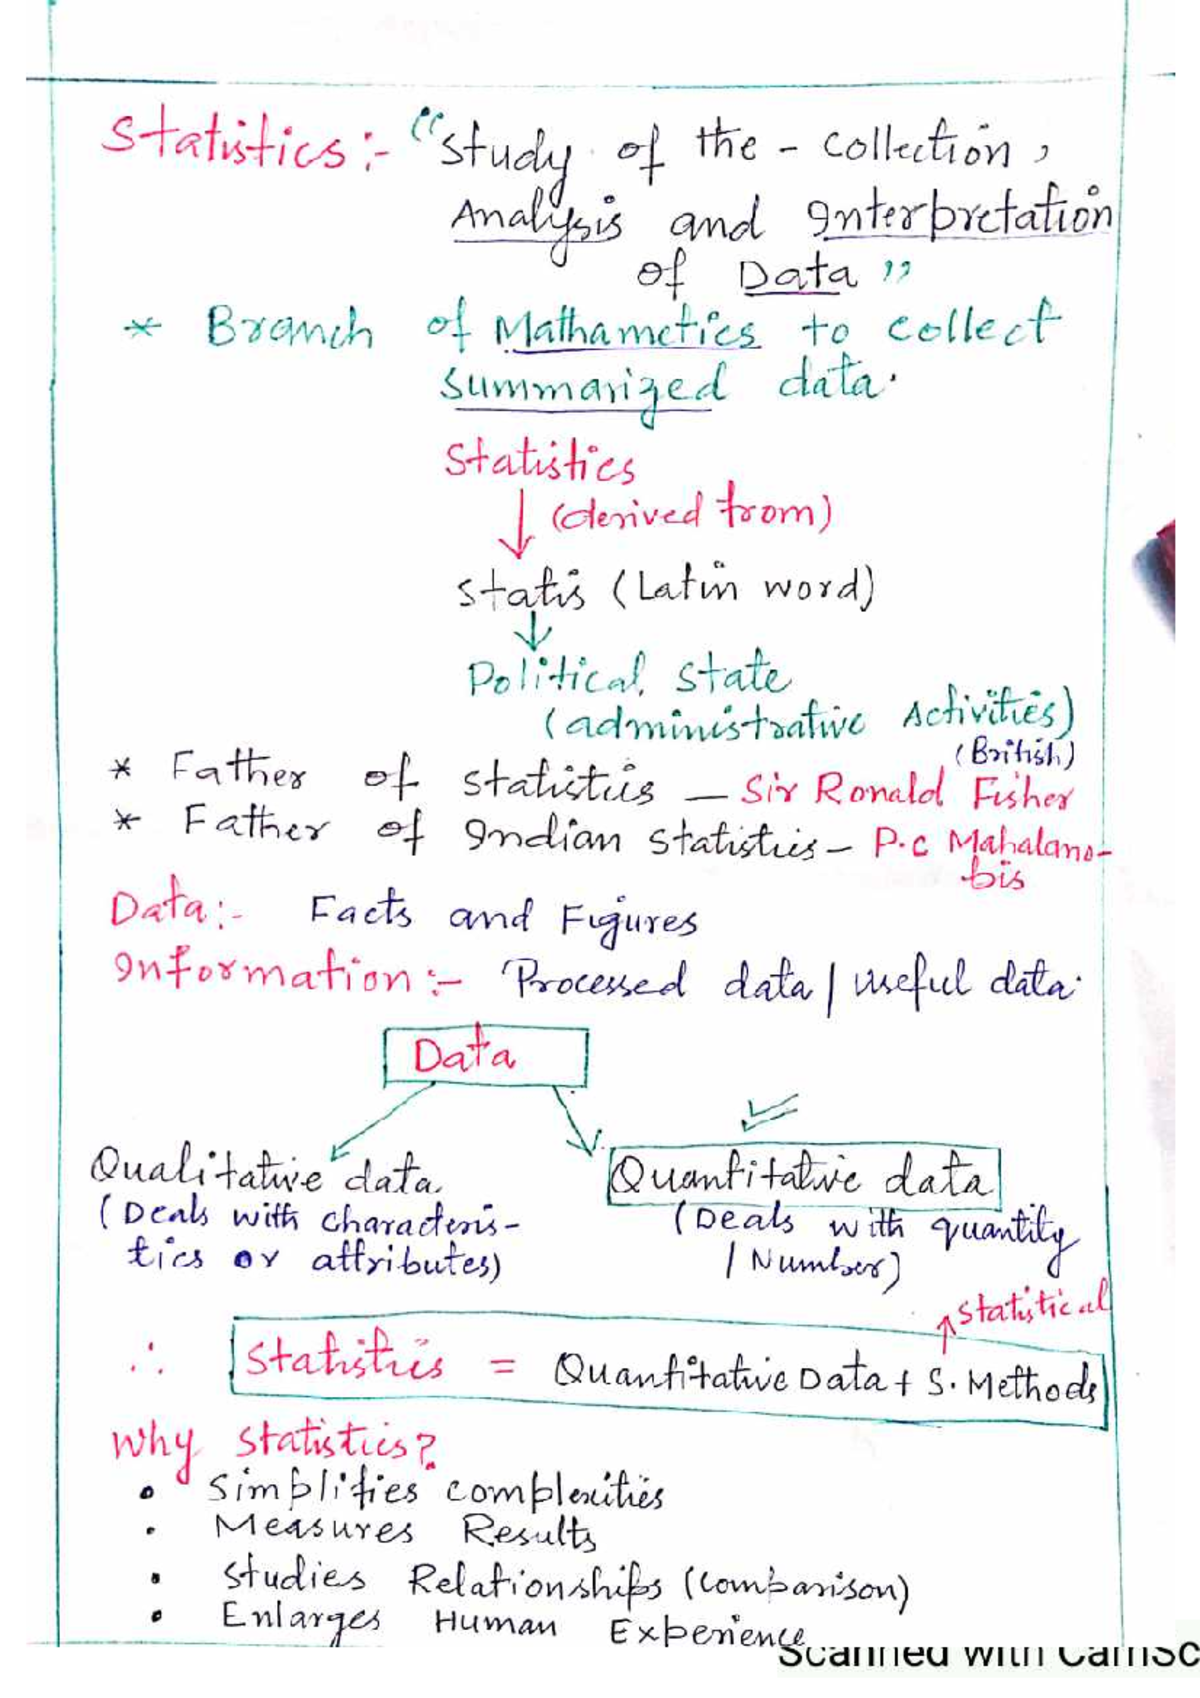 Statistics :- "Study of the - collection,
Analysis and Interpretation
of Data"
* Branch of Mathametics to collect
summarized data.
Statistics
↓ (derived from)
Statis (Latin word)
↓
Political state
(administrative Activities)
(British)
* Father of statistics — Sir Ronald Fisher
* Father of Indian statistics — P.C Mahalano-
bis
Data :- Facts and Figures
Information :- Processed data / useful data.
Data
Qualitative data
Quantitative data
(Deals with characteris-
tics or attributes)
(Deals with quantity
/ Number)
Statistical
∴ Statistics = Quantitative Data + S. Methods
Why statistics?
• Simplifies complexities
• Measures Results
• Studies Relationships (comparison)
• Enlarges Human Experience
Scanned with CamSc